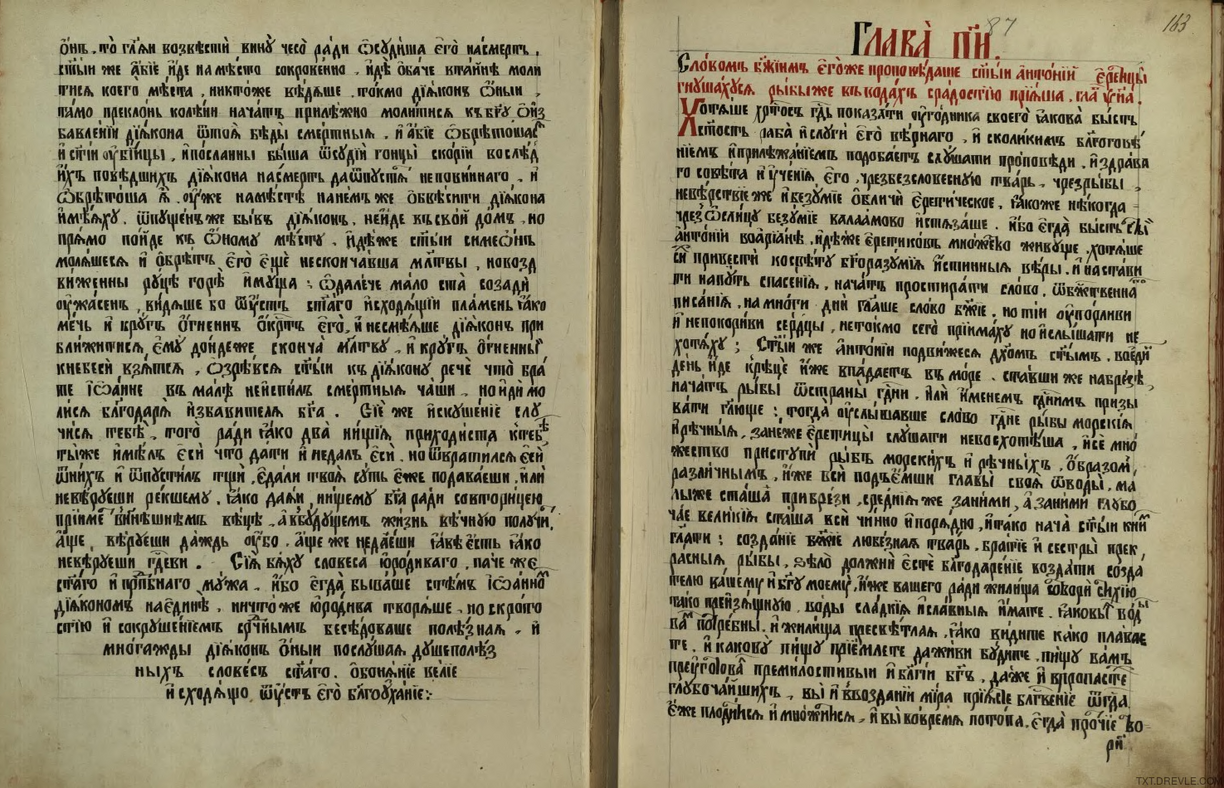 ѻ҆нъ, то гл҃ѧи возвѣсти вину̀ чесо̀ ради ѡ҆суди́ша є҆го̀ насмерть,
ст҃ыи же а҆́бїе и҆де намѣсто сокровенно, и҆дѣ̀ ѻ҆баче втайнѣ моли
тисѧ коего мѣста, никтоже вѣдѧше, токмо дїѧконъ ѻ҆ныи,
тамо преклонь колѣни начатъ прилѣжно молитисѧ къ бг҃у ѻ҆ из
бавленїи дїѧкона ѿтоѧ бѣды смертныѧ, и҆ а҆бїе ѡ҆брѣтоша
и сїи ѹ҆бїицы, и҆посланны быша ѿсудїи гонцы скорїи вослѣд
и҆хъ поведшихъ дїѧкона насмерть даѿпустѧ̀ неповиннаго, и
ѡ҆брѣтоша ѧ, ѹ҆же намѣстѣ нанемже ѻ҆бвѣсити дїѧкона
и҆мѣѧху, ѿпущенъже бывъ дїѧконъ, нейде въ свой домъ, но
прѧмо пойде къ ѻ҆ному мѣсту, и҆дѣже ст҃ыи симеѡ҆нъ
молѧшесѧ и҆ ѡ҆брѣтъ є҆го є҆щѐ нескончавша мл҃твы, новозд
виженны руцѣ горѣ̀ имуща, ѿдалече мало ста созади
ѹ҆жасенъ, видѧше бо ѿустъ ст҃аго и҆сходѧщїи пламень ꙗко
мечь и кругъ ѻ҆гненнъ ѻ҆крестъ є҆го, и҆ несмѣѧше дїѧконъ при
ближитисѧ є҆му дондеже сконча мл҃тву, и кругъ ѻ҆гненны
кнебеси взѧтсѧ, ѡ҆зрѣвсѧ ст҃ыи къ дїѧкону рече что бра
те і҆ѡ҆анне въ малѣ неиспилъ смертныѧ чаши, но иди мо
лисѧ благодарѧ и҆збавителѧ бг҃а. Сїе же и҆скушенїе слу
чисѧ тебѣ, того ради ꙗко два нищїѧ приходиста к тебѣ
тыже и҆мѣлъ є҆си что дати и недалъ є҆си, но ѿвратилсѧ є҆си
ѿнихъ и ѿпустилъ тщи, є҆дали твоѧ суть є҆же подаваеши, или
невѣруеши рекшему, ꙗко даѧи, нищему бг҃а ради совторицею
прїиме внѣшнѣмъ вѣцѣ, а вбудущемъ жизнь вѣчную получи,
а҆ще вѣруеши даждь ѹ҆бо, а҆ще же недаеши ꙗвѣ є҆сть ꙗко
невѣруеши гд҃еви. Сїѧ бѧху словеса юродиваго, паче же
ст҃аго и прп҃бнаго мужа, и҆бо є҆гда бываше сътѣмъ і҆ѡ҆анно
дїѧкономъ наединѣ, ничтоже юродива творѧше, но скрото
стїю и сокрушенїемъ срд҃чнымъ бесѣдоваше полѣзнаѧ, и
многажды дїѧконъ ѻ҆ныи послушаѧ душеполѣз
ныхъ словесъ ст҃аго, ѻ҆бонѧнїе велїе
и҆ сходѧщо ѿустъ є҆го благоуханїе:
163
Глава̀ пи҃. 87
Словомъ бж҃їимъ є҆гоже проповѣдаше ст҃ыи а҆нтонїй є҆ретицы
гнушахусѧ, рыбыже въводахъ срадостїю прїѧша, гла
Хотѧше христосъ гд҃ь показати ѹ҆годника своего ꙗкова бысть
ст҃ость раба и҆слуги є҆го вѣрнаго, и сколикимъ благоговѣ
нїемъ и҆прилѣжанїемъ подобаетъ слушати проповѣди, и здрава
го совѣта и ученїѧ є҆го, чрезбезсловесную тварь, чрезрыбы,
невѣрствїе же и҆безумїе ѻ҆бличи є҆ретическое, ꙗкоже нѣкогда
чрез ѡ҆слицу безумїе валаамово и҆стѧзаше, и҆бо є҆гда бысть
а҆нтонїй воарїанѣ, и҆дѣже є҆ретиковъ множество живуще, хотѧше
привести косвѣту бг҃оразумїѧ и҆стинныѧ вѣры, и настави
ти напуть спасенїѧ, начатъ простирати слово, ѿбж҃ественна
писанїѧ, на многи дни гл҃аше слово бж҃їе, но тїи ѹ҆порливи
и непокориви сердцы, нетокмо сего прїимаху но ислышати не
хотѧху; Ст҃ыи же а҆нтонїи подвижесѧ дх҃омъ ст҃ымъ, воедин
день, и҆де крѣце иже впадаетъ въ море, ставши же набрезѣ,
начатъ рыбы ѿстраны гд҃ни, и҆ли и҆менемъ гд҃нимъ призы
вати гл҃юще; тогда ѹ҆слышавше слово гд҃не рыбы морскїѧ
и҆рѣчныѧ, занеже є҆ретицы слушати невосхотѣша, и҆се мно
жество приступи рыбъ морскихъ и рѣчныхъ, ѻ҆бразом
различнымъ, и҆же вси подъемши главы своѧ ѿводы, ма
лыже сташа прибрези, среднїѧ же заними, а заними глубо
чае великїѧ сташа вси чинно и҆порѧдно, и҆тако нача ст҃ыи
гл҃ати; созданїе бж҃їе любезнаѧ тварь, братїе и сестры прек
расныѧ рыбы, ѕѣло должни є҆сте благодаренїе воздати созда
телю вашему и҆ бг҃у моему, и҆же вашего ради жилища
тако преизѧщную, воды сладкїѧ и҆славныѧ и҆мате, ꙗковы вод
потребны, и жилища пресвѣтлаѧ, ꙗко видите како плавае
те, и какову пищу прїемлете даживи будите, пищу вамъ
преуготова премилостивыи и благїи бг҃ъ, даже и впропасте
глубочайшихъ, вы и ввозданїи мїра прїѧсте блг҃венїе ѿгда
є҆же плодитисѧ и множитисѧ, и вы вовремѧ потопа, є҆гда прочїе
рѧ
TXT.DREVLE.COM